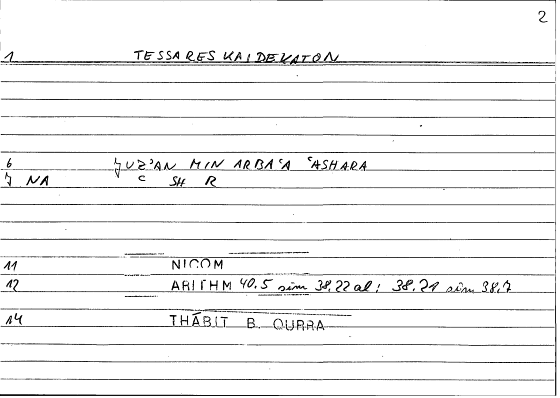 2
1 TESSARESKAIDEKATON
6 ǦUZʾAN MIN ARBAʿA ʿASHARA
Ǧ NA C SH R
11 NICOM
12 ARITHM 40.5 sim 38.22 al; 38.21 sim 38.7
14 THĀBIT B. QURRA